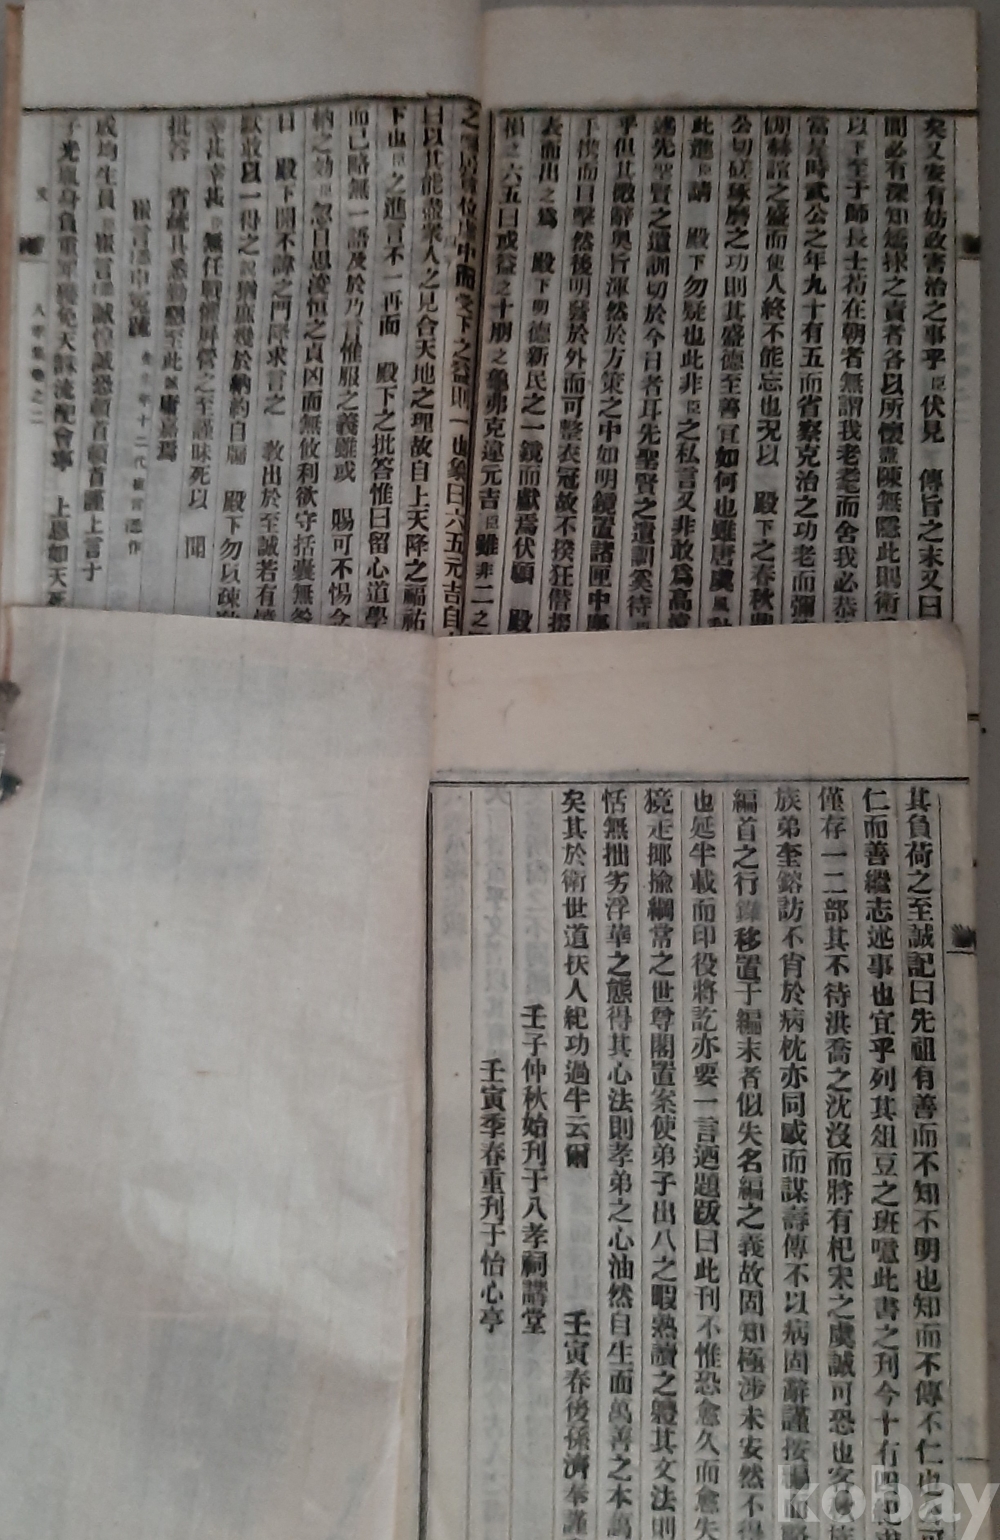 矣又安有妨政害治之事乎臣伏見 傳旨之末又曰
間必有深知
以下至于師長士苟在朝者無謂我老耄而舍我必恭
當是時武公之年九十有五而省察克治之功老而彌
赫諠之盛而使人終不能忘也况以 殿下之春秋
公切磋琢磨之功則其盛德至善宜如何也雖唐虞風
此進臣請 殿下勿疑也此非臣之私言又非敢爲高
述先聖賢之遺訓切於今日者耳先聖賢之遺訓奚待
乎但其微辭奧旨渾然於方策之中如明鏡置諸匣中
然後明醫於外而可整衣冠故不揆狂僭掇
表而出之爲 殿下明德新民之一鏡而獻焉伏願 殿
損之六五曰或益之十朋之龜弗克違元吉臣雖非二之
則一也象曰六五元吉自
曰以其能盡衆人之見合天地之理故自上天降之福祐
下也臣之進言不一再而 殿下之批答惟曰留心道學
而已略無一語及於乃言惟服之義雖或 賜可不惕念
納之効臣忽自思浚恒之貞凶而無攸利欲守括囊無咎
日 殿下開不諱之門降求言之 敎出於至誠若有
獻敢以一得之說猶庶幾於納約自牖 殿下勿以疎
幸甚幸甚臣無任戰惶屛營之至謹昧死以 聞
批答 省疏具悉 至此誠庸嘉焉
崔言 申冤疏 十二代 作
成均生員臣崔言 誠惶誠恐頓首頓首謹上言于
身負重 免天誅流配會寧 上恩如天死
八孝集卷之二
其負荷之至誠記曰先祖有善而不知不明也知而不傳不仁也
仁而善繼志述事也宜乎列其俎豆之班噫此書之刊今十有四
僅存一二部其不待洪喬之沈沒而將有杞宋之虞誠可恐也
族弟奎鎔訪不肖於病枕亦同感而謀壽傳不以病固辭謹按
編首之行 移置于編末者似失名編之義故固知極涉未安然不得
也延半載而印役將訖亦要一言迺題跋曰此刊不惟恐愈久而愈失
獍走揶揄綱常之世尊閣置案使弟子出八之暇熟讀之軆其文法則
恬無拙劣浮華之態得其心法則孝弟之心油然自生而萬善之本
矣其於衛世道扶人紀功過半云爾 壬寅春後孫濟奉謹
壬子仲秋始刊于八孝祠講堂
壬寅季春重刊于怡心亭
kobay